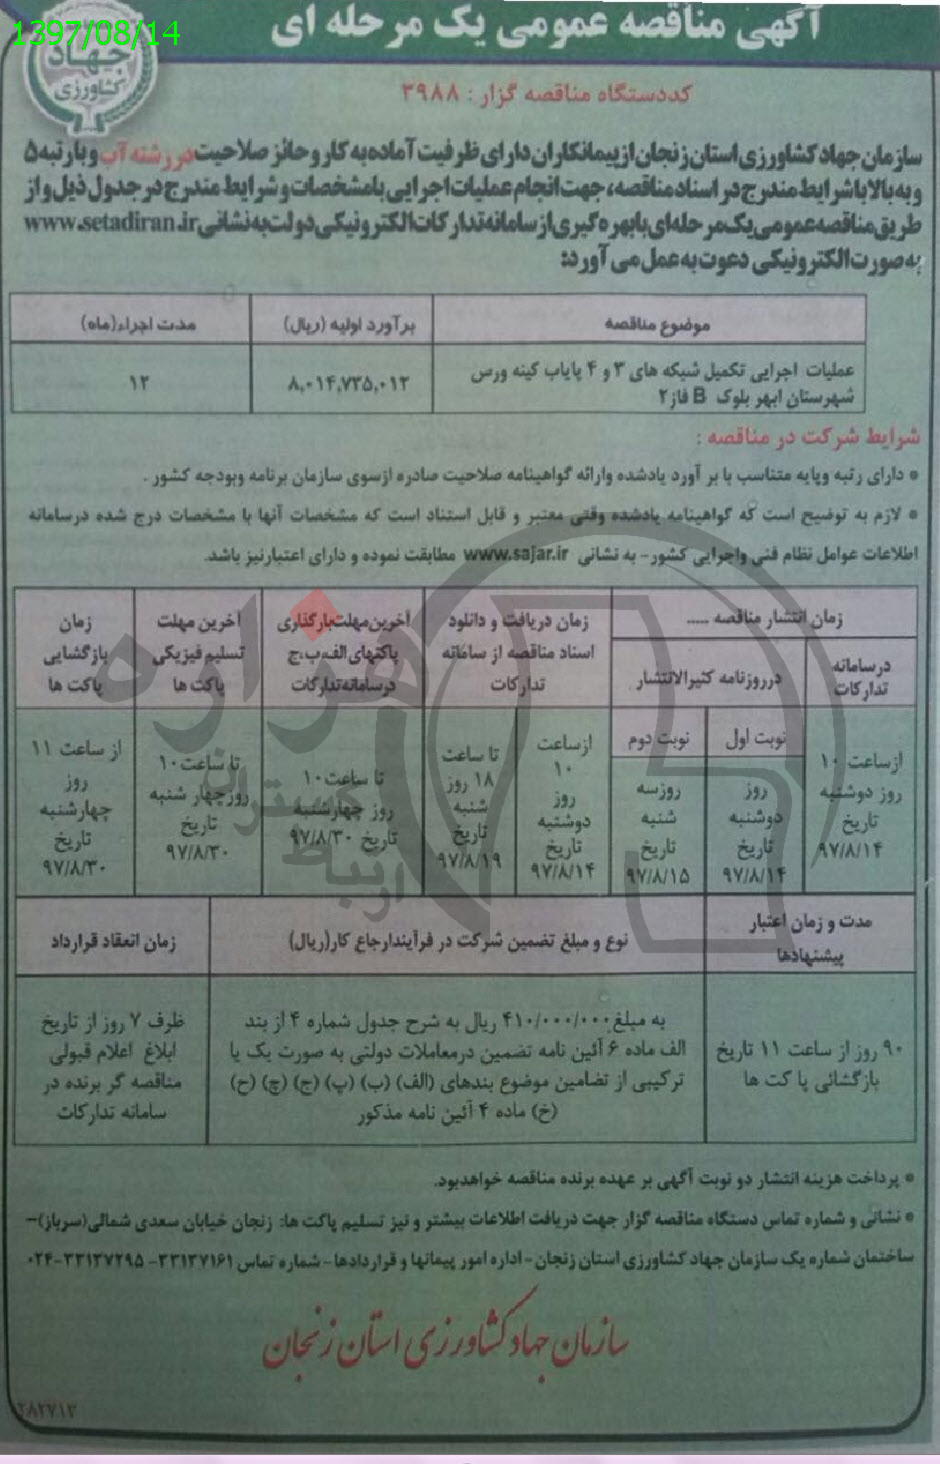 1397/08/14
آگهی مناقصه عمومی یک مرحله ای
جهاد
کشاورزی
کددستگاه مناقصه گزار : ۳۹۸۸
سازمان جهاد کشاورزی استان زنجان از پیمانکاران دارای ظرفیت آماده به کار و حائز صلاحیت در رشته آب و با رتبه ۵
و به بالا با شرایط مندرج در اسناد مناقصه، جهت انجام عملیات اجرایی با مشخصات و شرایط مندرج در جدول ذیل و از
طریق مناقصه عمومی یک مرحله‌ای با بهره گیری از سامانه تدارکات الکترونیکی دولت به نشانی www.setadiran.ir
به صورت الکترونیکی دعوت به عمل می آورد:
موضوع مناقصه
برآورد اولیه (ریال)
مدت اجراء(ماه)
عملیات اجرایی تکمیل شبکه های ۳ و ۴ پایاب کینه ورس
شهرستان ابهر بلوک B فاز۲
۸,۰۱۴,۷۳۵,۰۱۳
۱۲
شرایط شرکت در مناقصه :
* دارای رتبه وپایه متناسب با بر آورد یادشده وارائه گواهینامه صلاحیت صادره ازسوی سازمان برنامه وبودجه کشور .
* لازم به توضیح است که گواهینامه یادشده وقتی معتبر و قابل استناد است که مشخصات آنها با مشخصات درج شده درسامانه
اطلاعات عوامل نظام فنی واجرایی کشور- به نشانی www.sajar.ir مطابقت نموده و دارای اعتبارنیز باشد.
زمان انتشار مناقصه .....
درسامانه
تدارکات
درروزنامه کثیرالانتشار
زمان دریافت و دانلود
اسناد مناقصه از سامانه
تدارکات
آخرین‌مهلت‌بارگذاری
پاکتهای الف،ب،ج
درسامانه‌تدارکات
آخرین مهلت
تسلیم فیزیکی
پاکت ها
زمان
بازگشایی
پاکت ها
نوبت اول
نوبت دوم
ازساعت ۱۰
روز دوشنبه
تاریخ
۹۷/۸/۱۴
روز
دوشنبه
تاریخ
۹۷/۸/۱۴
روزسه
شنبه
تاریخ
۹۷/۸/۱۵
ازساعت
۱۰
روز
دوشنبه
تاریخ
۹۷/۸/۱۴
تا ساعت
۱۸ روز
شنبه
تاریخ
۹۷/۸/۱۹
تا ساعت۱۰
روز چهارشنبه
تاریخ ۹۷/۸/۳۰
تا ساعت۱۰
روزچهار شنبه
تاریخ
۹۷/۸/۳۰
از ساعت ۱۱
روز
چهارشنبه
تاریخ
۹۷/۸/۳۰
مدت و زمان اعتبار
پیشنهادها
نوع و مبلغ تضمین شرکت در فرآیندارجاع کار(ریال)
زمان انعقاد قرارداد
۹۰ روز از ساعت ۱۱ تاریخ
بازگشائی پا کت ها
به مبلغ ۴۱۰/۰۰۰/۰۰۰ ریال به شرح جدول شماره ۴ از بند
الف ماده ۶ آئین نامه تضمین درمعاملات دولتی به صورت یک یا
ترکیبی از تضامین موضوع بندهای (الف) (ب) (پ) (ج) (چ) (ح)
(خ) ماده ۴ آئین نامه مذکور
ظرف ۷ روز از تاریخ
ابلاغ اعلام قبولی
مناقصه گر برنده در
سامانه تدارکات
* پرداخت هزینه انتشار دو نوبت آگهی بر عهده برنده مناقصه خواهدبود.
* نشانی و شماره تماس دستگاه مناقصه گزار جهت دریافت اطلاعات بیشتر و نیز تسلیم پاکت ها: زنجان خیابان سعدی شمالی(سرباز)-
ساختمان شماره یک سازمان جهاد کشاورزی استان زنجان - اداره امور پیمانها و قراردادها - شماره تماس ۳۳۱۳۷۱۶۱- ۳۳۱۳۷۲۹۵-۰۲۴
سازمان جهاد کشاورزی استان زنجان
۲۸۲۷۱۳
هزاره
گستران
ارتباط